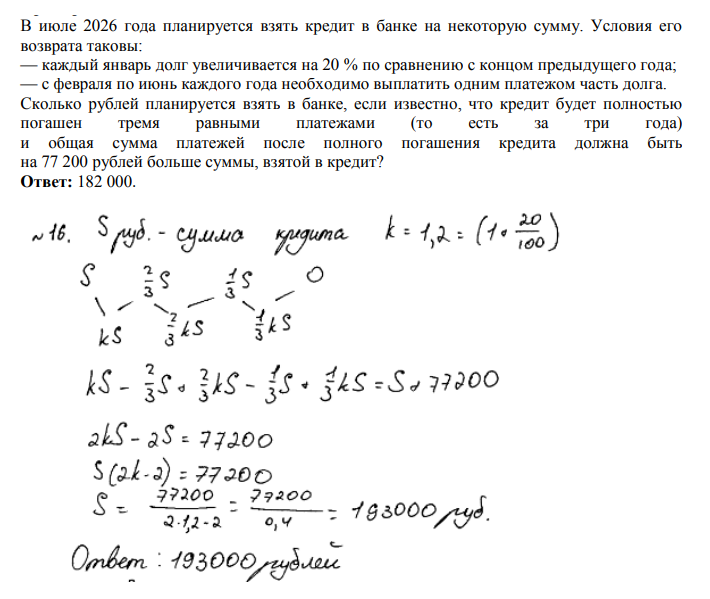 В июле 2026 года планируется взять кредит в банке на некоторую сумму. Условия его
возврата таковы:
— каждый январь долг увеличивается на 20 % по сравнению с концом предыдущего года;
— с февраля по июнь каждого года необходимо выплатить одним платежом часть долга.
Сколько рублей планируется взять в банке, если известно, что кредит будет полностью
погашен тремя равными платежами (то есть за три года)
и общая сумма платежей после полного погашения кредита должна быть
на 77 200 рублей больше суммы, взятой в кредит?
Ответ: 182 000.
№16. S руб. - сумма кредита k = 1,2 = (1+20/100)
S 2/3S 1/3S 0
kS 2/3kS 1/3kS
kS - 2/3S + 2/3kS - 1/3S + 1/3kS = S + 77200
2kS - 2S = 77200
S(2k-2) = 77200
S = 77200/(2·1,2-2) = 77200/0,4 = 193000 руб.
Ответ: 193000 рублей